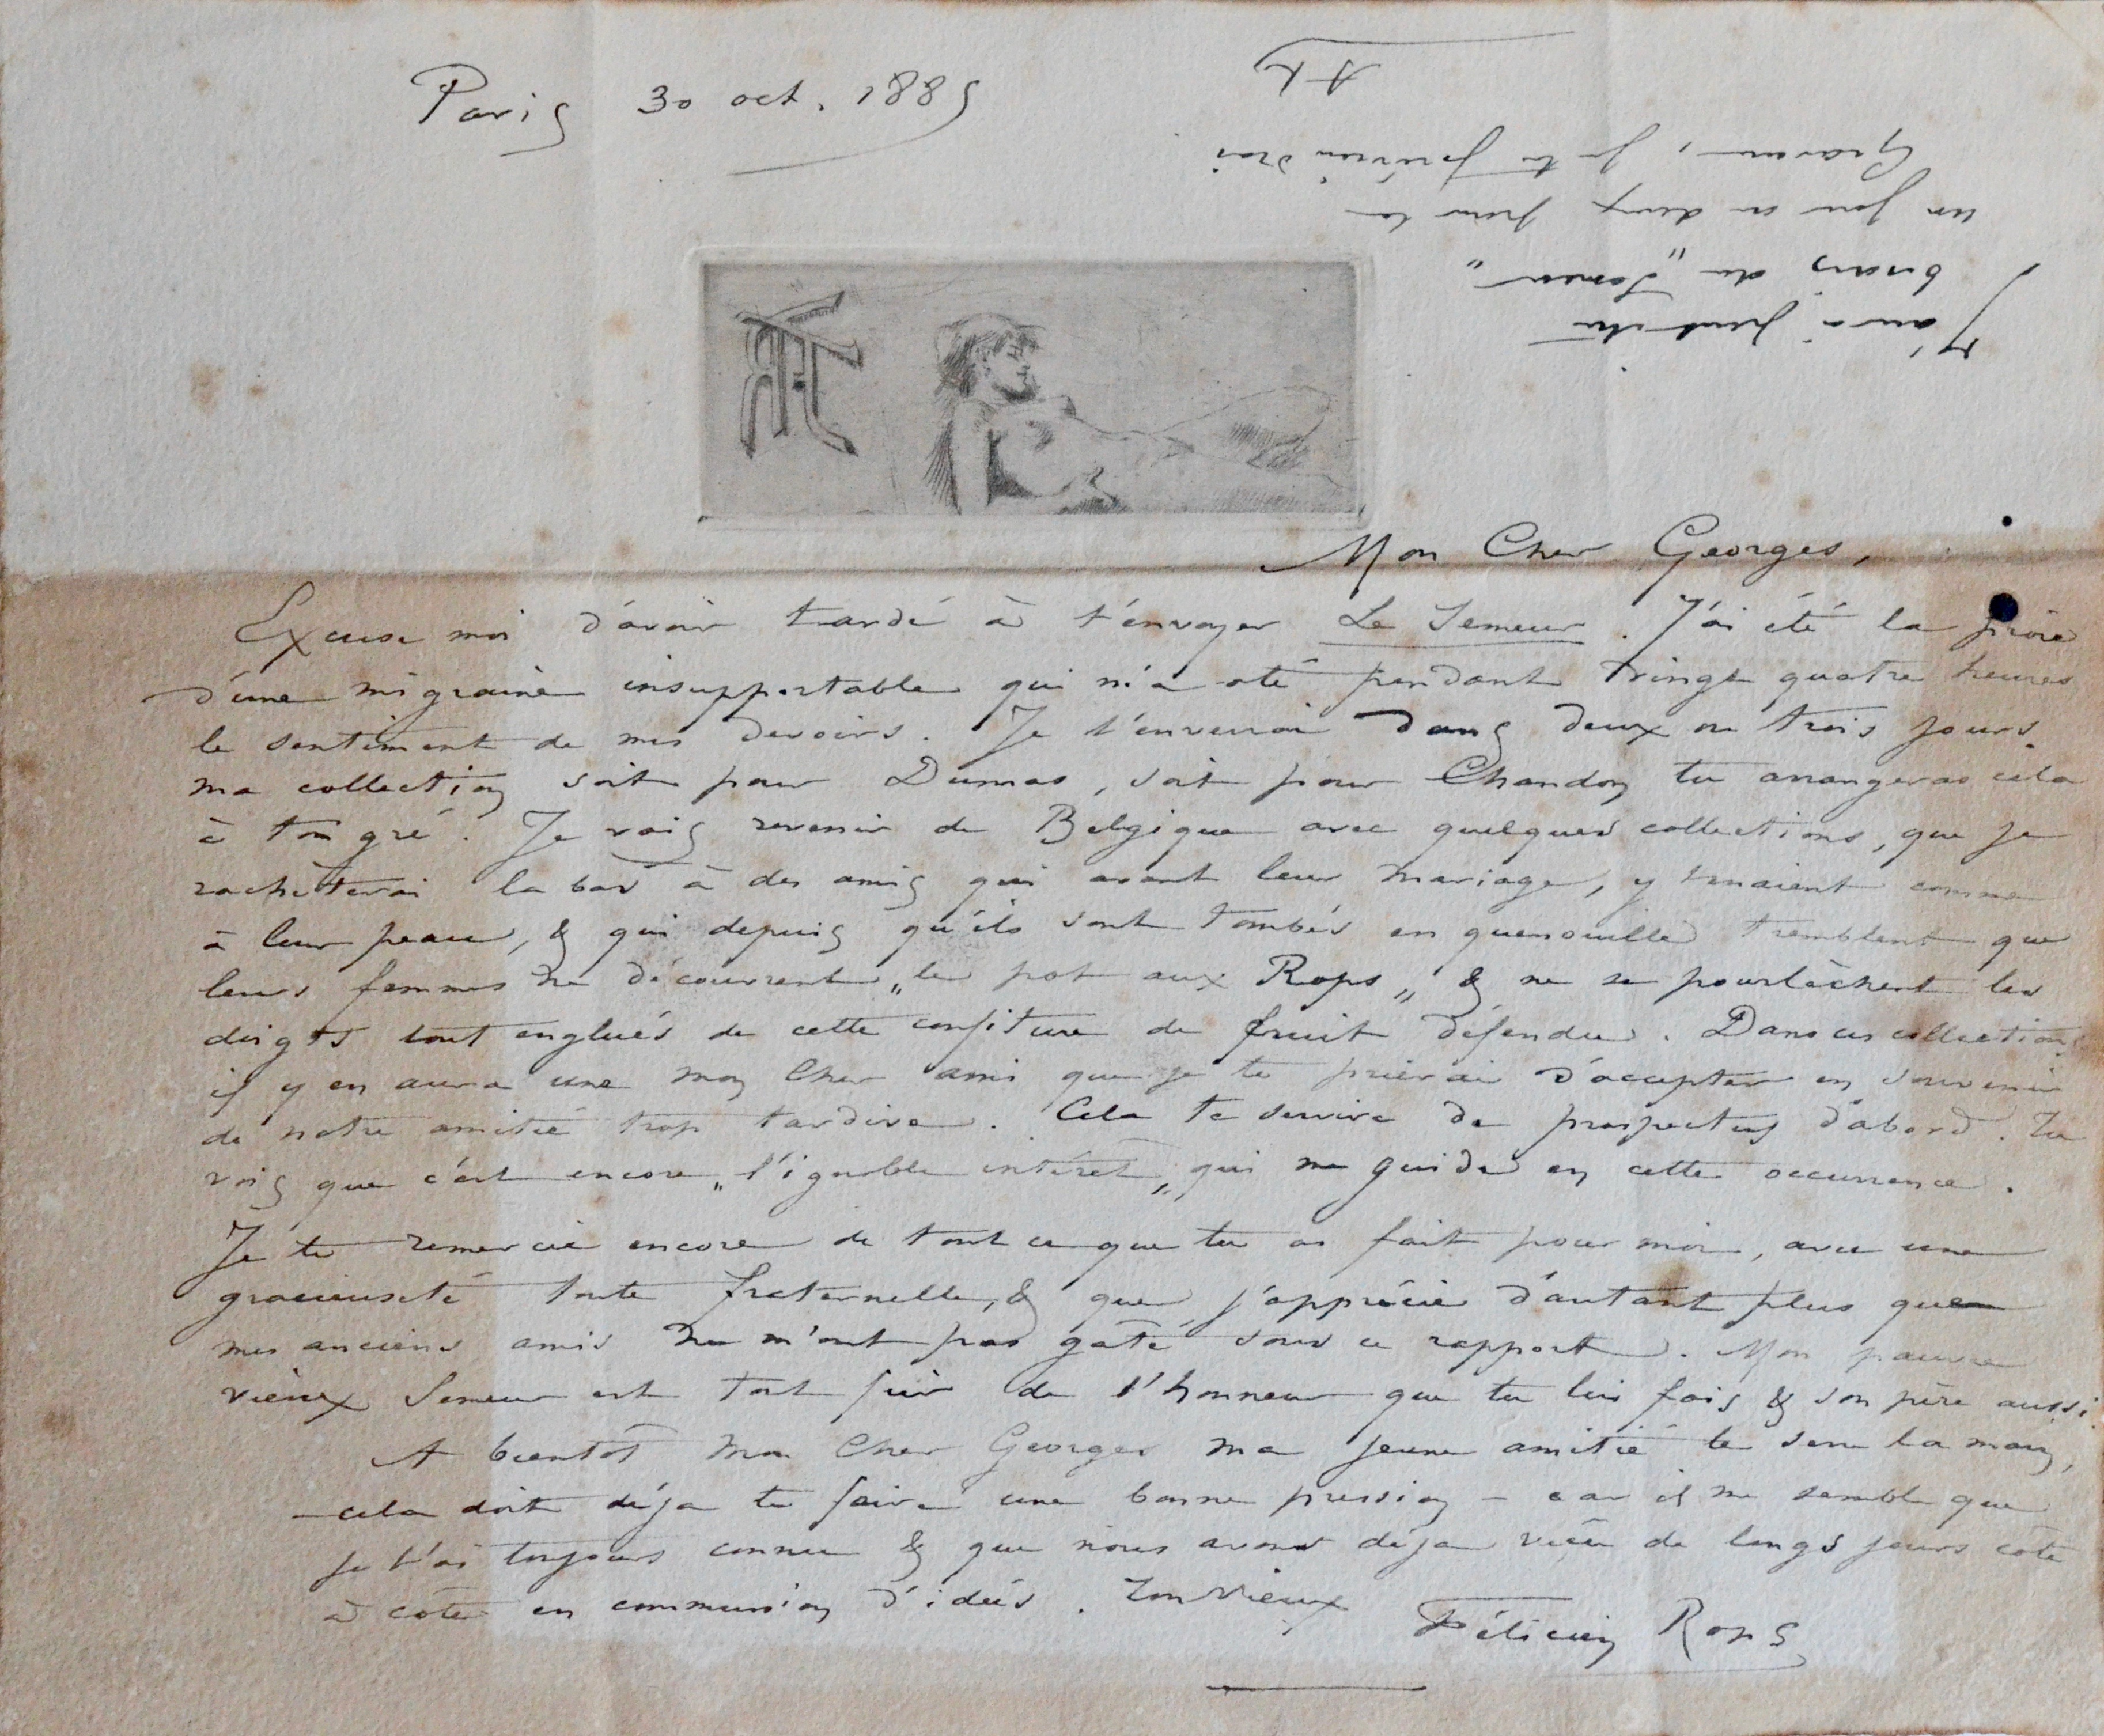 Paris 30 oct. 1885
Mon Cher Georges,
Excuse moi d'avoir tardé à t'envoyer Le Semeur. J'ai été la proie
d'une migraine insupportable qui m'a oté pendant vingt quatre heures
le sentiment de mes devoirs. Je t'enverrai dans deux ou trois jours
ma collection soit pour Dumas, soit pour Chandon tu arrangeras cela
à ton gré. Je vais revenir de Belgique avec quelques collections, que je
rachèterai la bas à des amis qui avant leur mariage, y tenaient comme
à leur peau, & qui depuis qu'ils sont tombés en quenouille tremblent que
leurs femmes ne découvrent „le pot aux Rops„ & ne se pourlèchent les
doigts tout englués de cette confiture de fruit défendu. Dans ces collections
il y en aura une mon Cher ami que je te prierai d'accepter en souvenir
de notre amitié trop tardive. Cela te servira de prospectus d'abord. Tu
vois que c'est encore „l'ignoble intérêt„ qui me guide en cette occurrence.
Je te remercie encore de tout ce que tu as fait pour moi, avec une
gracieuseté toute fraternelle, & que j'apprécie d'autant plus que
mes anciens amis ne m'ont pas gâté sous ce rapport. Mon pauvre
vieux Semeur est tout fier de l'honneur que tu lui fais & son père aussi.
A bientôt mon Cher Georges ma jeune amitié te serre la main,
– cela doit déja te faire une bonne pression – car il me semble que
je t'ai toujours connu & que nous avons déja vécu de longs jours côte
à côte en communion d'idées. Ton vieux
Félicien Rops
J'aurai peut-être
besoin du „Semeur„
un jour ou deux pour la
Gravure, je te préviendrai